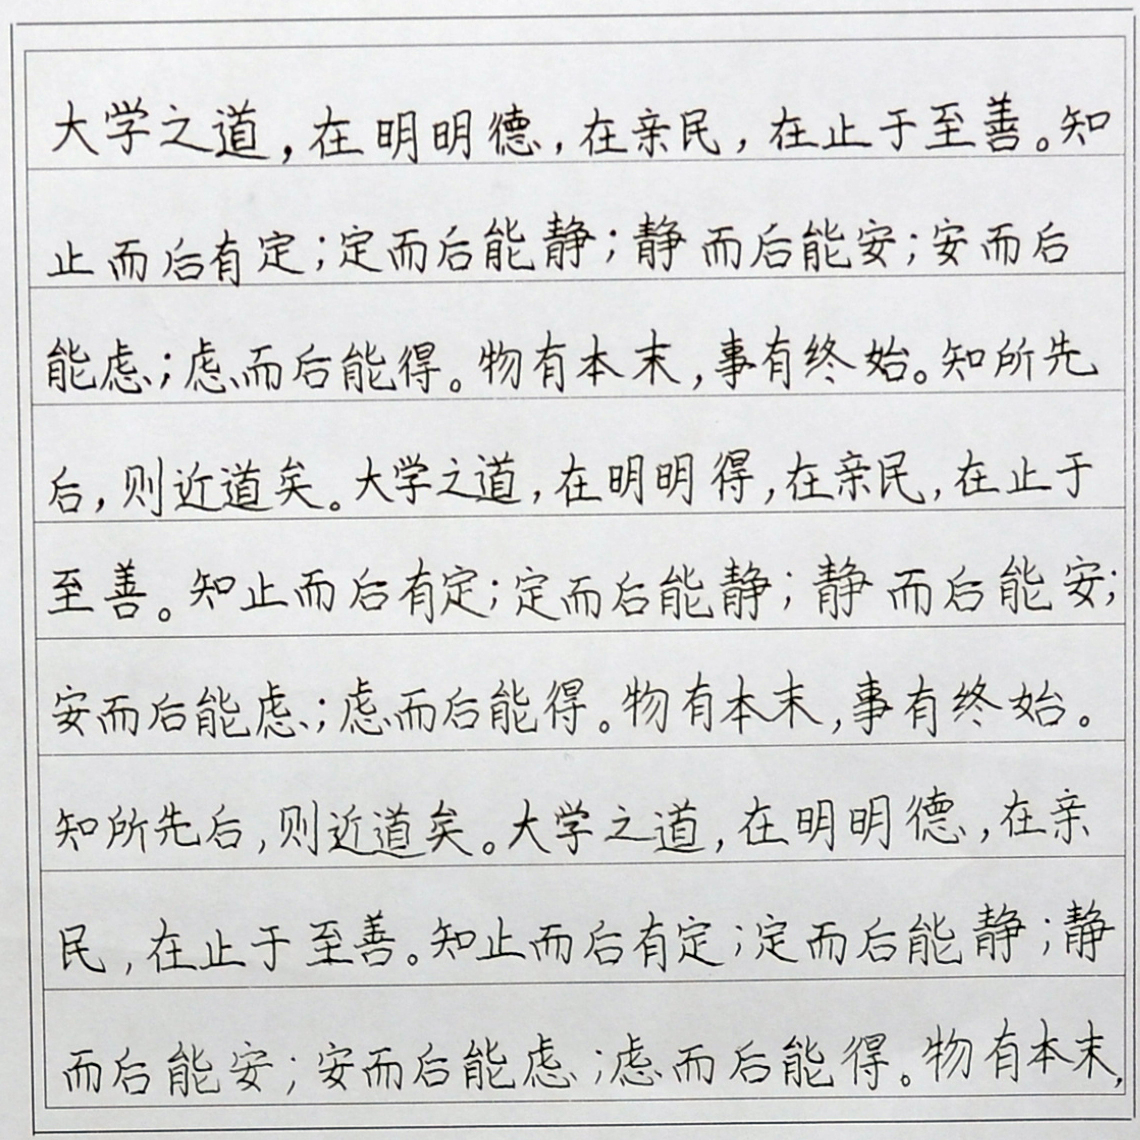 大学之道，在明明德，在亲民，在止于至善。知
止而后有定；定而后能静；静而后能安；安而后
能虑；虑而后能得。物有本末，事有终始。知所先
后，则近道矣。大学之道，在明明得，在亲民，在止于
至善。知止而后有定；定而后能静；静而后能安；
安而后能虑；虑而后能得。物有本末，事有终始。
知所先后，则近道矣。大学之道，在明明德，在亲
民，在止于至善。知止而后有定；定而后能静；静
而后能安；安而后能虑；虑而后能得。物有本末，